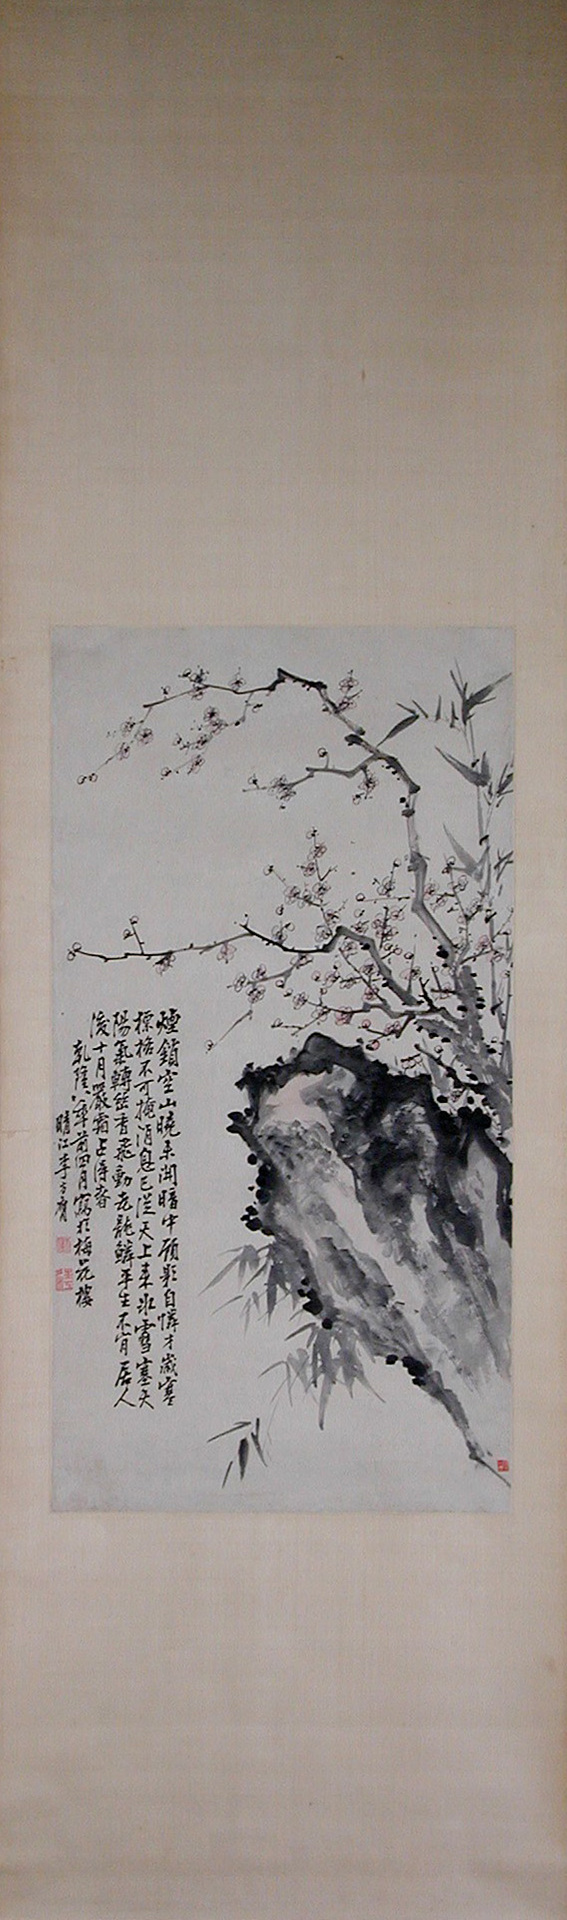 煙鎖空山曉未開暗中顧影自憐才歲寒
標格不可掩消息已從天上來冰雪塞天
陽氣轉
香飛動老龍鱗平生不肯居人
後十月嚴霜占得春
乾隆八年前四月寫於梅花樓
晴江李方膺